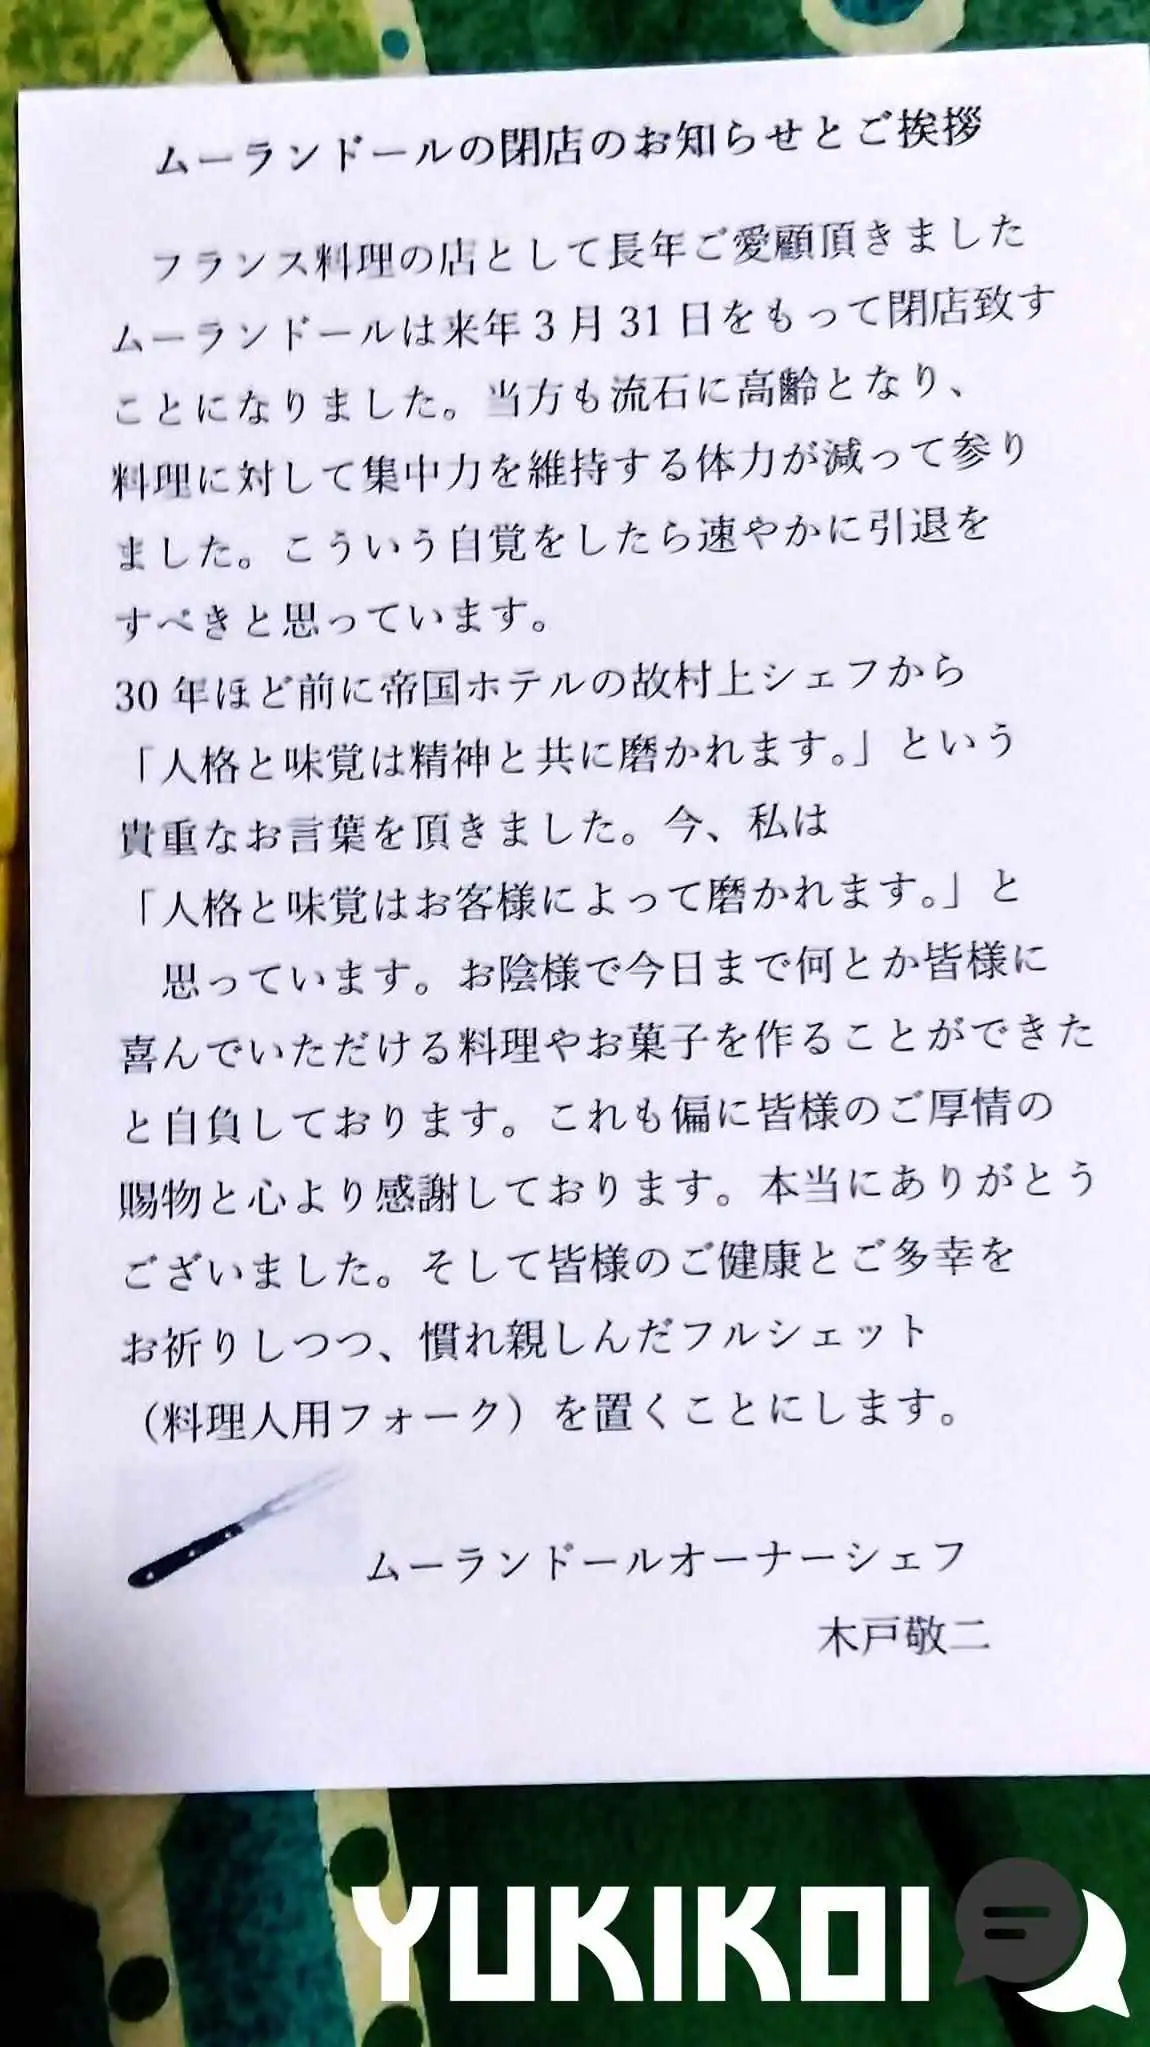 ムーランドールの閉店のお知らせとご挨拶
フランス料理の店として長年ご愛顧頂きました
ムーランドールは来年3月31日をもって閉店致す
ことになりました。当方も流石に高齢となり、
料理に対して集中力を維持する体力が減って参り
ました。こういう自覚をしたら速やかに引退を
すべきと思っています。
30年ほど前に帝国ホテルの故村上シェフから
「人格と味覚は精神と共に磨かれます。」という
貴重なお言葉を頂きました。今、私は
「人格と味覚はお客様によって磨かれます。」と
思っています。お陰様で今日まで何とか皆様に
喜んでいただける料理やお菓子を作ることができた
と自負しております。これも偏に皆様のご厚情の
賜物と心より感謝しております。本当にありがとう
ございました。そして皆様のご健康とご多幸を
お祈りしつつ、慣れ親しんだフルシェット
（料理人用フォーク）を置くことにします。
ムーランドールオーナーシェフ
木戸敬二
YUKIKOI